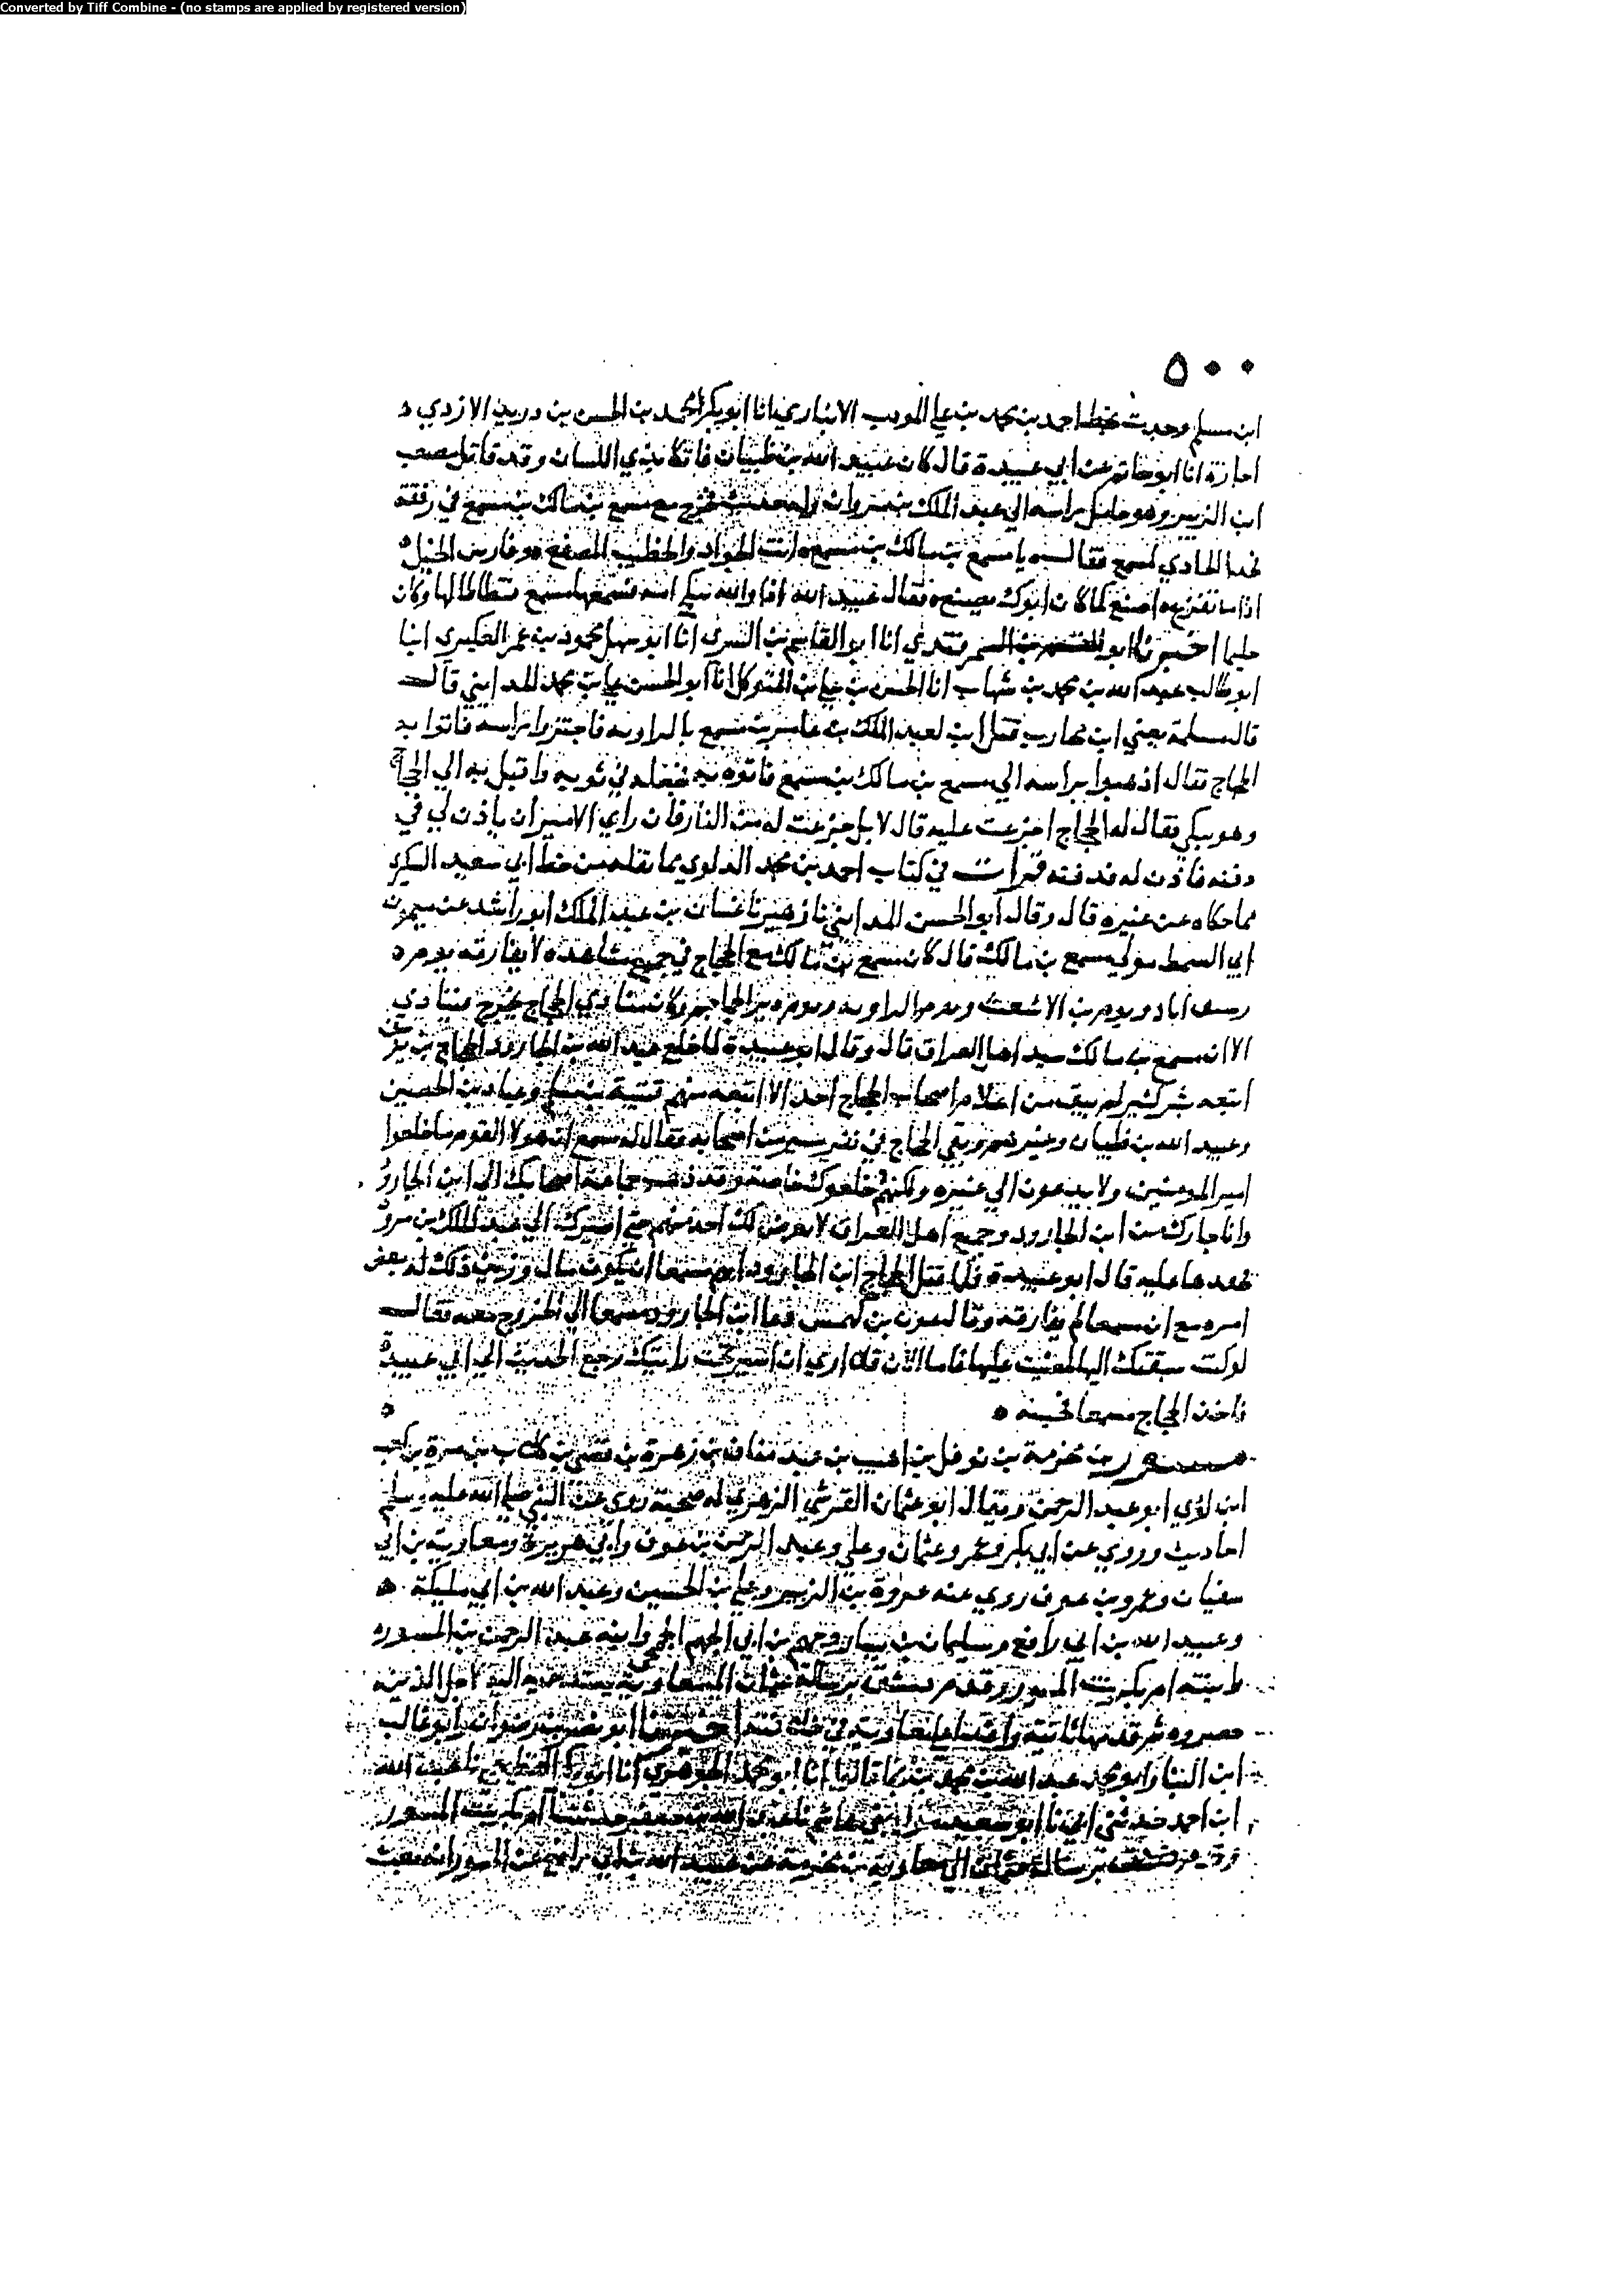 Converted by Tiff Combine - (no stamps are applied by registered version)
٥٠٠
ابن مسلم وجدت بخط احمد بن محمد بن علي المودب الانباري انا ابو بكر محمد بن الحسن بن دريد الازدي
اجازة انا ابو حاتم عن ابي عبيدة قال كان عبيد الله بن ظبيان فاتكا بذي اللسان وقد قاتل مصعب
ابن الزبير وهو حامل براسه الي عبد الملك بن مروان فخرج مع مسمع بن مالك بن مسمع في رفقة
فحدا الحادي لمسمع فقال يا مسمع بن مالك بن مسمع انت الجواد والخطيب المصقع وفارس الخيل
اذا ما تفزع اصنع كما كان ابوك يصنع فقال عبيد الله اما والله فسمعها مسمع وكان
حليما اخبرنا ابو السمرقندي انا ابو القاسم بن البسري انا ابو سهل محمود بن عمر العكبري انبا
ابو طالب عبد الله بن محمد بن شهاب انا الحسن بن علي بن المتوكل انا ابو الحسن علي بن محمد المدايني قال
قال مسلمة يعني ابن محارب قتل ابن لعبد الملك بن عامر بن مسمع بالزاوية فاجتزوا براسه فاتوا به
الحجاج فقال اذهبوا براسه الي مسمع بن مالك بن مسمع فاتوه به فجعله في ثوبه واقبل به الي الحجاج
وهو يبكي فقال له الحجاج اجزعت عليه قال لا بل جزعت له من النار فان راي الامير ان ياذن لي في
دفنه فاذن له فدفنه قرات في كتاب احمد بن محمد الدلوي مما نقله من خط ابي سعيد السكري
مما حكاه عن غيره قال وقال ابو الحسن المدايني نا زهير نا غسان بن عبد الملك ابو راشد عن ميمون
ابي السمط مولي مسمع بن مالك قال كان مسمع بن مالك مع الحجاج في جميع مشاهده لا يفارقه يوم
ويوم بن الاشعث ويوم الزاوية ويوم دير الجماجم وكان منادي الحجاج يخرج فينادي
الا ان مسمع بن مالك سيد اهل العراق قال وقال ابو عبيدة لما خلع عبد الله بن الجارود الحجاج بن يوسف
اتبعه بشر كثير لم يبق من اعلام اصحاب الحجاج احد الا اتبعه منهم قتيبة بن مسلم وعباد بن الحصين
وعبيد الله بن ظبيان وغيرهم وبقي الحجاج في نفر يسير من اصحابه فقال له مسمع ان هولا القوم ما خلعوا
امير المومنين ولا يدعون الي غيره ولكنهم خلعوك خاصة وقد ذهب جماعة اصحابك الي ابن الجارود
وانا جارك من ابن الجارود وجميع اهل العراق لا يعرض لك احد منهم حتي اصيرك الي عبد الملك بن مروان
فعدها عليه قال ابو عبيدة فلما قتل الحجاج ابن الجارود مسمعا ان يكون مال ذلك له بعض
امره مع ان مسمعا لم يفارقه وقال عون بن كهمس دعا ابن الجارود مسمعا الي الخروج معه فقال
لو كنت سبقتك اليها لمضيت عليها فاما الان فلا اري ان اسير تحت رايتك رجع الحديث الي ابي عبيدة
فاخذ الحجاج مسمعا فحبسه
مسور بن مخرمة بن نوفل بن اهيب بن عبد مناف بن زهرة بن قصي بن كلاب بن مرة بن كعب
ابن لؤي ابو عبد الرحمن ويقال ابو عثمان القرشي الزهري له صحبة روي عن النبي صلي الله عليه وسلم
احاديث وروي عن ابي بكر وعمر وعثمان وعلي وعبد الرحمن بن عوف وابي هريرة ومعاوية بن ابي
سفيان وعمرو بن عوف روي عنه عروة بن الزبير وعلي بن الحسين وعبد الله بن ابي مليكة
وعبيد الله بن ابي رافع وسليمان بن يسار وجهم بن ابي الجهم الجمحي وابنه عبد الرحمن بن المسور
وابنته ام بكر بنت المسور وقدم دمشق برسالة عثمان الي معاوية يستدعيه اليه لاجل الذين
حصروه ثم قدمها ثانية وافدا علي معاوية في خلافته اخبرنا ابو نصر بن رضوان وابو غالب
ابن البنا وابو محمد عبد الله بن محمد بن نجا قالوا انا ابو محمد الجوهري انا ابو بكر القطيعي نا عبد الله
ابن احمد حدثني ابي نا ابو سعيد مولي بني هاشم نا عبد الله بن جعفر حدثتنا ام بكر بنت المسور
بن مخرمة عن عبيد الله بن ابي رافع عن المسور انه بعث